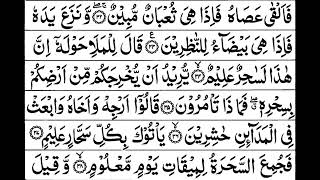 فَاَلْقٰى عَصَاهُ فَاِذَا هِىَ ثُعْبَانٌ مُّبِيْنٌ ﴿۳۲﴾ وَّنَزَعَ يَدَهٗ
فَاِذَا هِىَ بَيْضَآءُ لِلنّٰظِرِيْنَ ﴿۳۳﴾ قَالَ لِلْمَلَاِ حَوْلَهٗۤ اِنَّ
هٰذَا لَسٰحِرٌ عَلِيْمٌ ﴿۳۴﴾ يُّرِيْدُ اَنْ يُّخْرِجَكُمْ مِّنْ اَرْضِكُمْ
بِسِحْرِهٖ فَمَا ذَا تَاْمُرُوْنَ ﴿۳۵﴾ قَالُوْۤا اَرْجِهْ وَاَخَاهُ وَابْعَثْ
فِى الْمَدَآئِنِ حٰشِرِيْنَ ﴿۳۶﴾ يَاْتُوْكَ بِكُلِّ سَحَّارٍ عَلِيْمٍ ﴿۳۷﴾
فَجُمِعَ السَّحَرَةُ لِمِيْقَاتِ يَوْمٍ مَّعْلُوْمٍ ﴿۳۸﴾ وَّقِيْلَ